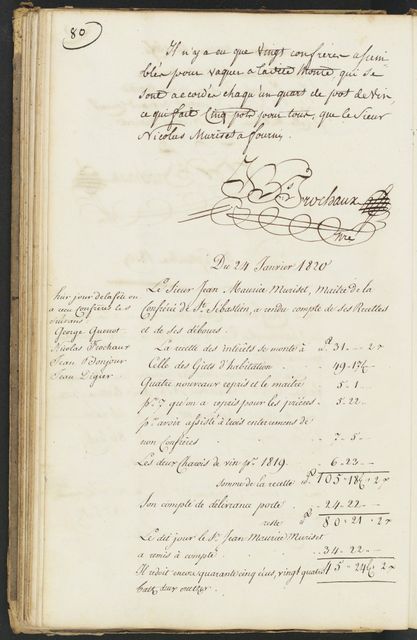 80
Il n'y a eu que vingt confrères assem
blés pour vaquer à la dite monte, qui se
sont accordés chaqu'un quart de pot de vin,
ce qui fait Cinq pots pour tous, que le Sieur
Nicolas Muriset a fourny
Brochaux
Du 24 Janvier 1820
Sur jour de la fête on
a reçu Confrères les
suivans
George Quenot
Nicolas Frochaux
Jean Bonjour
Jean Digier
Le Sieur Jean Maurice Muriset, Maitre de la
Confrérie de St. Sébastien, a rendu compte de ses Recettes
et de ses débours.
La recette des intérêts se monte à 31 - - 2
Celle des Giets d'habitation 49 - 17
Quatre nouveaux repris et le maitre 5 - 1 -
pr. 7 qu'on a repris pour les prières 5 - 22 -
pr. avoir assisté à trois enterremens de
non Confrères 7 - 5 -
Les deux Charois de vin pr. 1819. 6 - 23 -
somme de la recette 105 - 18 - 2
Son compte de délivrance porte 24 - 22 -
reste 80 - 21 - 2
Le dit jour le Sr. Jean Maurice Muriset
a remis à compte 34 - 22 -
Il redoit encore quarante cinq écus, vingt quatre 45 - 24 - 2
batz, deux